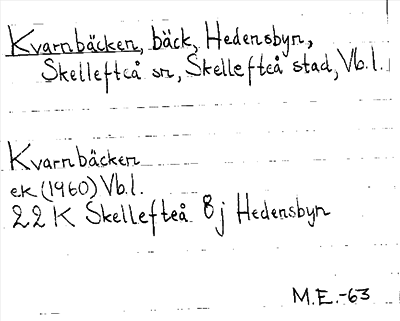 Kvarnbäcken, bäck, Hedensbyn,
Skellefteå sn, Skellefteå stad, Vb.l.
Kvarnbäcken
e.k (1960) Vb.l.
22 K Skellefteå 8j Hedensbyn
M.E.-63